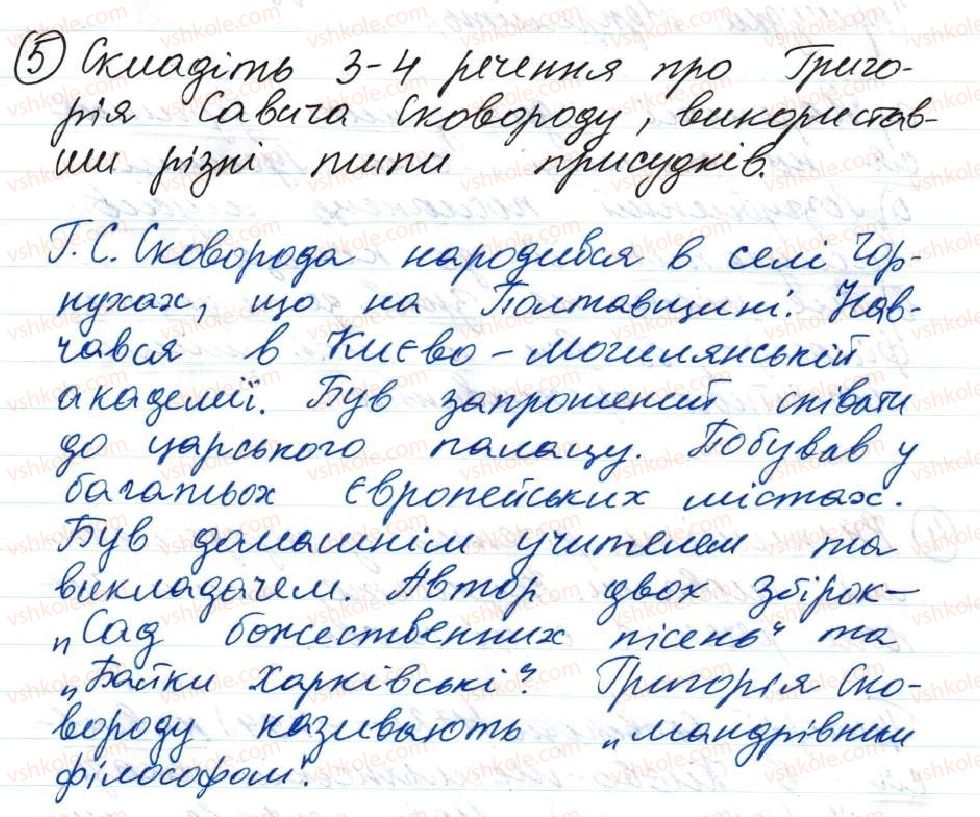 5 Складіть 3-4 речення про Григо-
рія Савича Сковороду, використав-
ши різні типи присудків.
Г. С. Сковорода народився в селі Чор-
нухах, що на Полтавщині. Нав-
чався в Києво-Могилянській
академії. Був запрошений співати
до царського палацу. Побував у
багатьох європейських містах.
Був домашнім учителем та
викладачем. Автор двох збірок-
„Сад божественних пісень" та
„Байки Харківські". Григорія Ско-
вороду називають „мандрівним
філософом".
vshkole.com